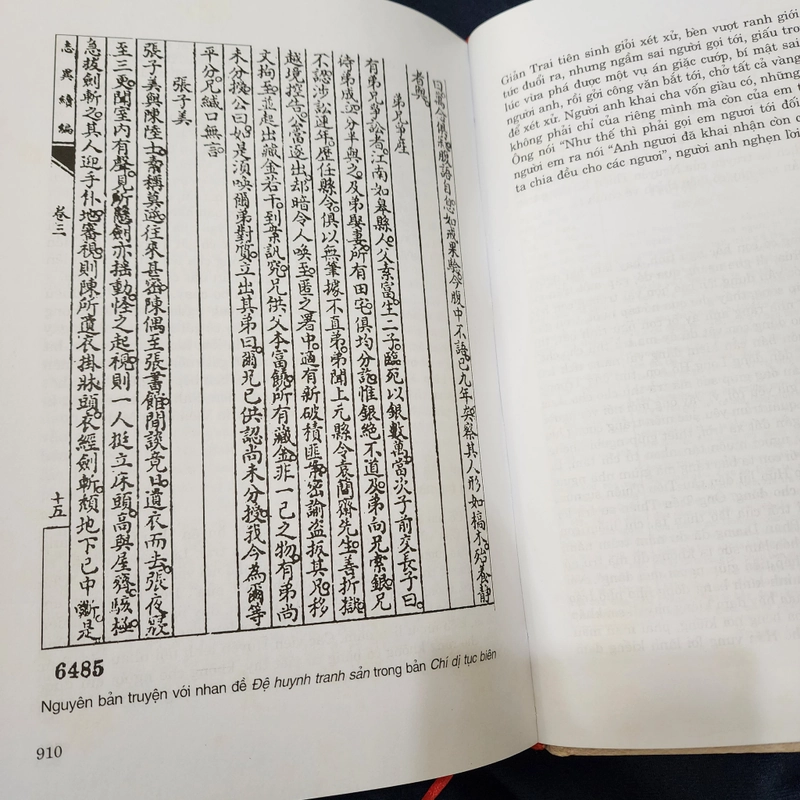 曰萬令俱稱腹語自您如成果驗今腹中不語已九年矣察其人形如槁木殆養靜
者與
弟兄爭產
有弟兄爭訟者江南如皋縣人父素富生二子臨死以銀數萬當次子前交長子曰
待弟成立分半與之及弟娶妻所有田宅俱均分訖惟銀絕不道及弟向兄索銀兄
不認涉訟連年歷任縣令俱以無筆據不直弟弟聞上元縣令袁簡齋先生善折獄
越境控告公當逐出却暗令人喚至匿之署中適有新破積匪案密諭盜扳其兄移
文拘至并起出藏金若干到案訊究兄供父本富饒所有藏金非一己之物有弟尚
未分授公曰如是須喚爾弟對質立出其弟曰爾兄已供認尚未分授我今為爾等
平分兄緘口無言
張子美
張子美與陳陸士素稱莫逆往來甚密陳偶至張書館閒談竟日遺衣而去張夜寢
至三更聞室內有聲見所懸劍亦搖動怪之起視則一人挺立床頭高與屋齊駭極
急拔劍斬之其人迎手仆地審視則陳所遺衣掛牀頭衣經劍斬頹地下已中斷是
志異續編
卷三
十五
6485
Nguyên bản truyện với nhan đề Đệ huynh tranh sản trong bản Chí dị tục biên
910
Giản Trai tiên sinh giỏi xét xử, bèn vượt ranh giới
tức đuổi ra, nhưng ngầm sai người gọi tới, giấu tro
lúc vừa phá được một vụ án giặc cướp, bí mật sai
người anh, rồi gởi công văn bắt tới, chở tất cả vàng
để xét xử. Người anh khai cha vốn giàu có, những
không phải chỉ của riêng mình mà còn của em t
Ông nói "Như thế thì phải gọi em ngươi tới đối
người em ra nói "Anh ngươi đã khai nhận còn c
ta chia đều cho các ngươi", người anh nghẹn lời